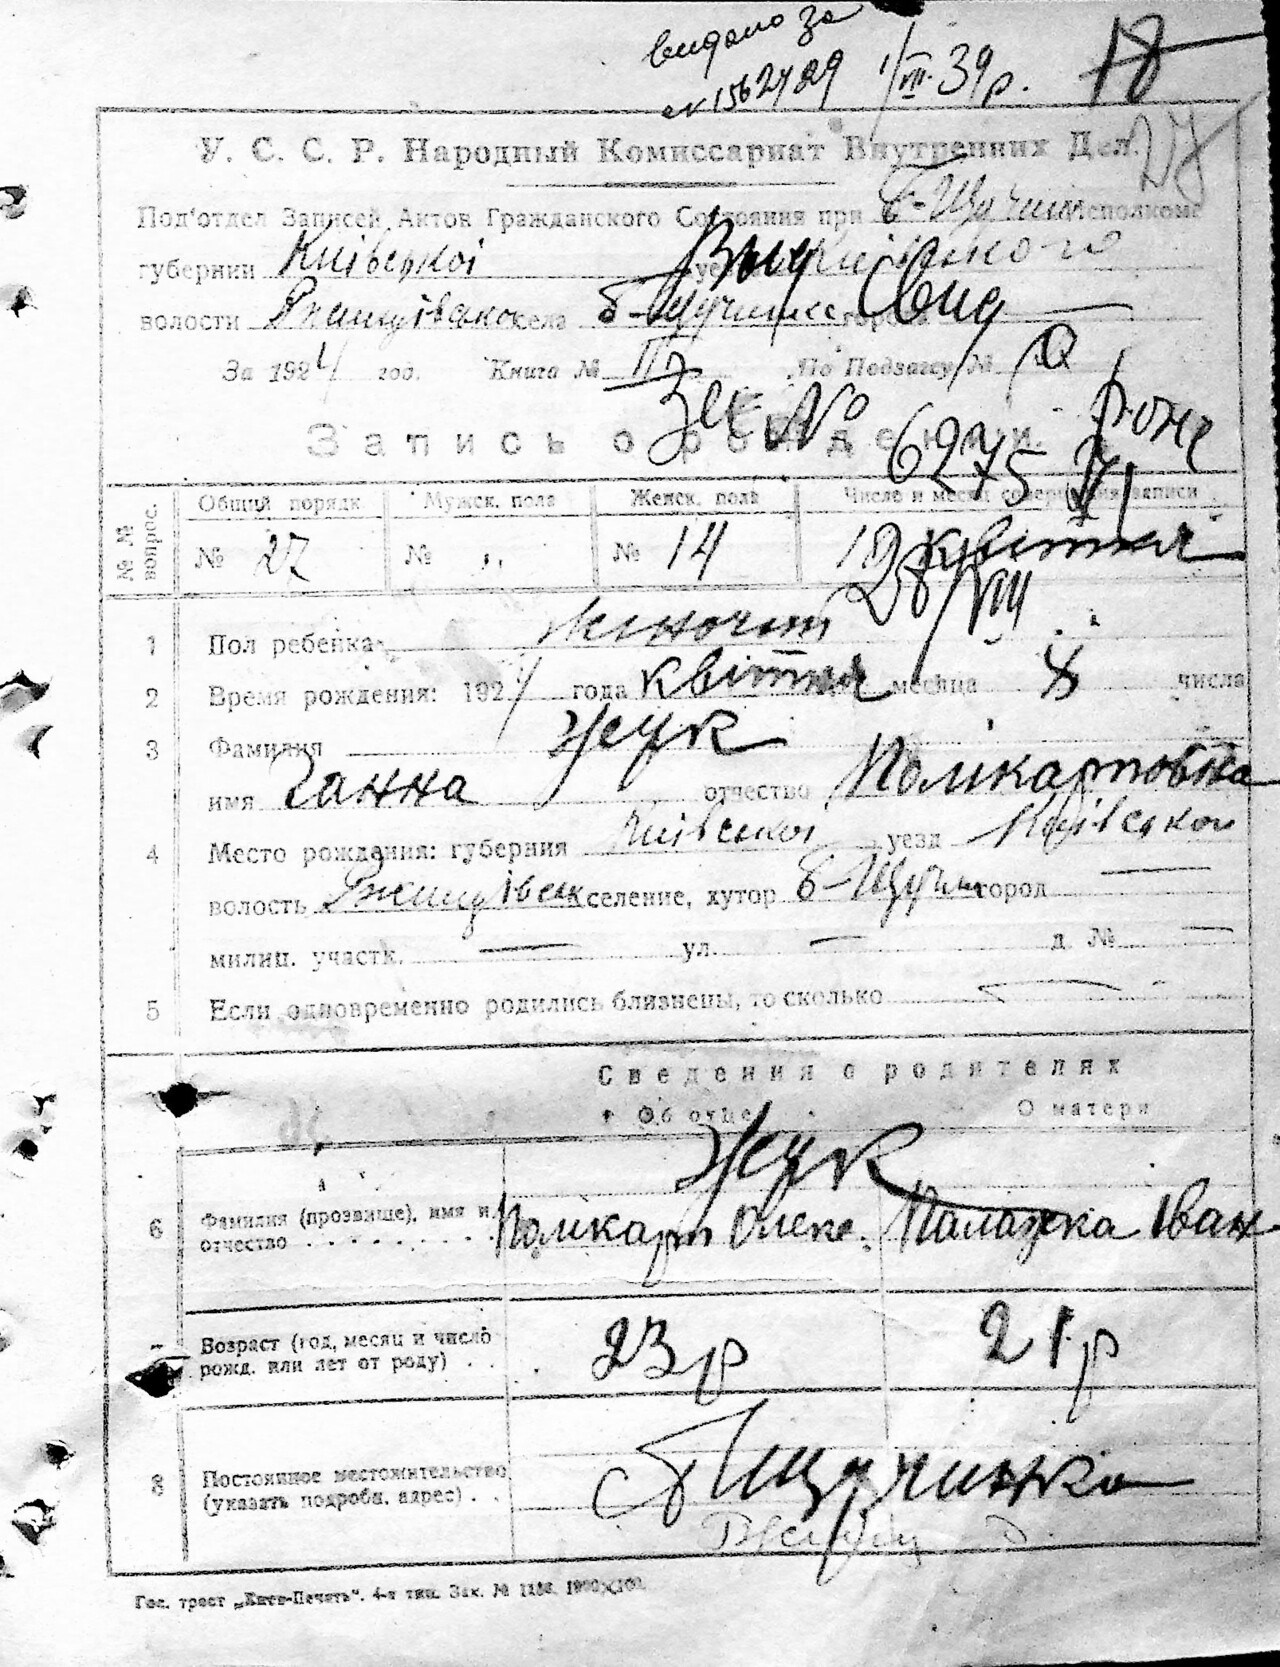 видано за
1562489 1/VIII 39р. 18
27
У. С. С. Р. Народный Комиссариат Внутренних Дел.
Под'отдел Записей Актов Гражданского Состояния при б-Щучин исполкоме
губернии Київської уезда Київського
волости Ржищівської села б-Щучинка города —
За 1924 год. Книга № II По Подзагсу №
Запись о рождении.
№ 6275
№ № вопрос. Общий порядк. Мужск. пола Женск. пола Число и месяц совершения записи
№ 27 № „ № 14 19 квітня
28/VIII
1 Пол ребенка жіночий
2 Время рождения: 1924 года квітня месяца 8 числа
3 Фамилия Жук
имя Ганна отчество Полікарповна
4 Место рождения: губерния Київської уезд Київської
волость Ржищівськ селение, хутор б-Щучин город —
милиц. участк. — ул. — д. № —
5 Если одновременно родились близнецы, то сколько —
Сведения о родителях
Об отце О матери
Жук
6 Фамилия (прозвище), имя и отчество Полікарп Олекс. Палажка Іван
7 Возраст (год, месяц и число рожд. или лет от роду) 23 р 21 р
8 Постоянное местожительство (указать подробн. адрес) б Щучинка
Гос. трест „Киев-Печать". 4-я тип. Зак. №